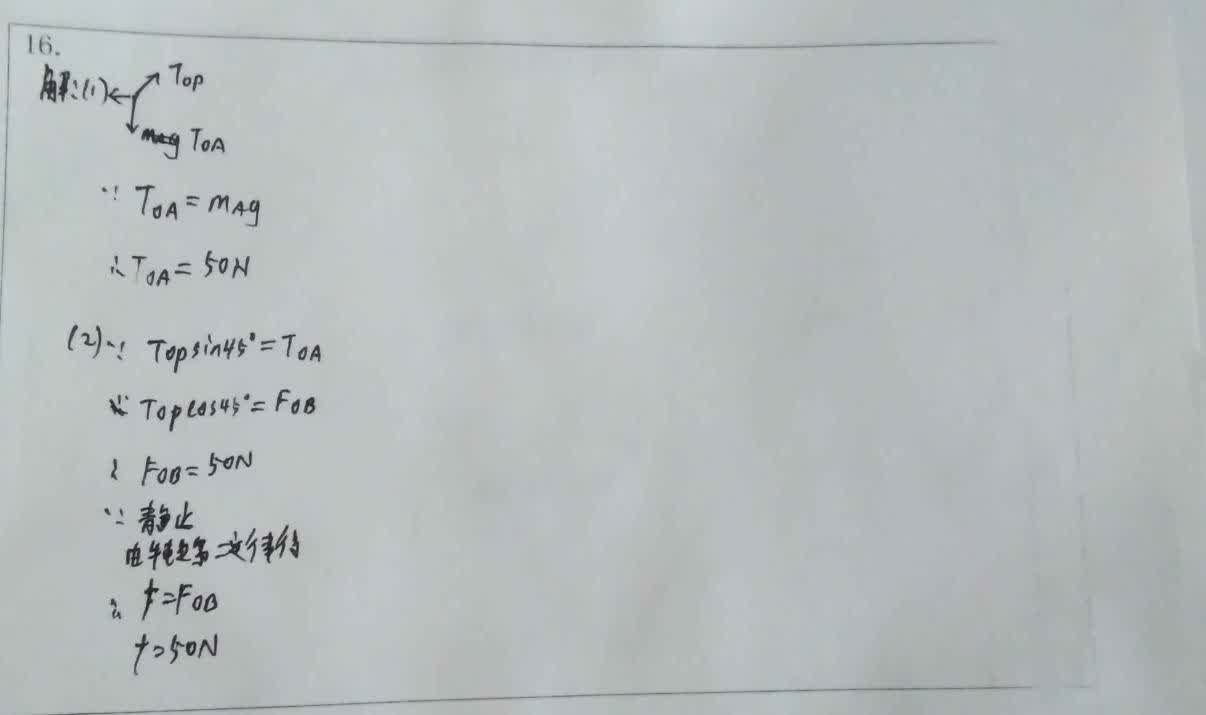 16.
解:(1) T_OP
T_OA
∵ T_OA = m_Ag
∴ T_OA = 50N
(2) ∵ T_OP sin45° = T_OA
∵ T_OP cos45° = F_OB
∴ F_OB = 50N
∵ 静止
由牛
∴ f = F_OB
f = 50N